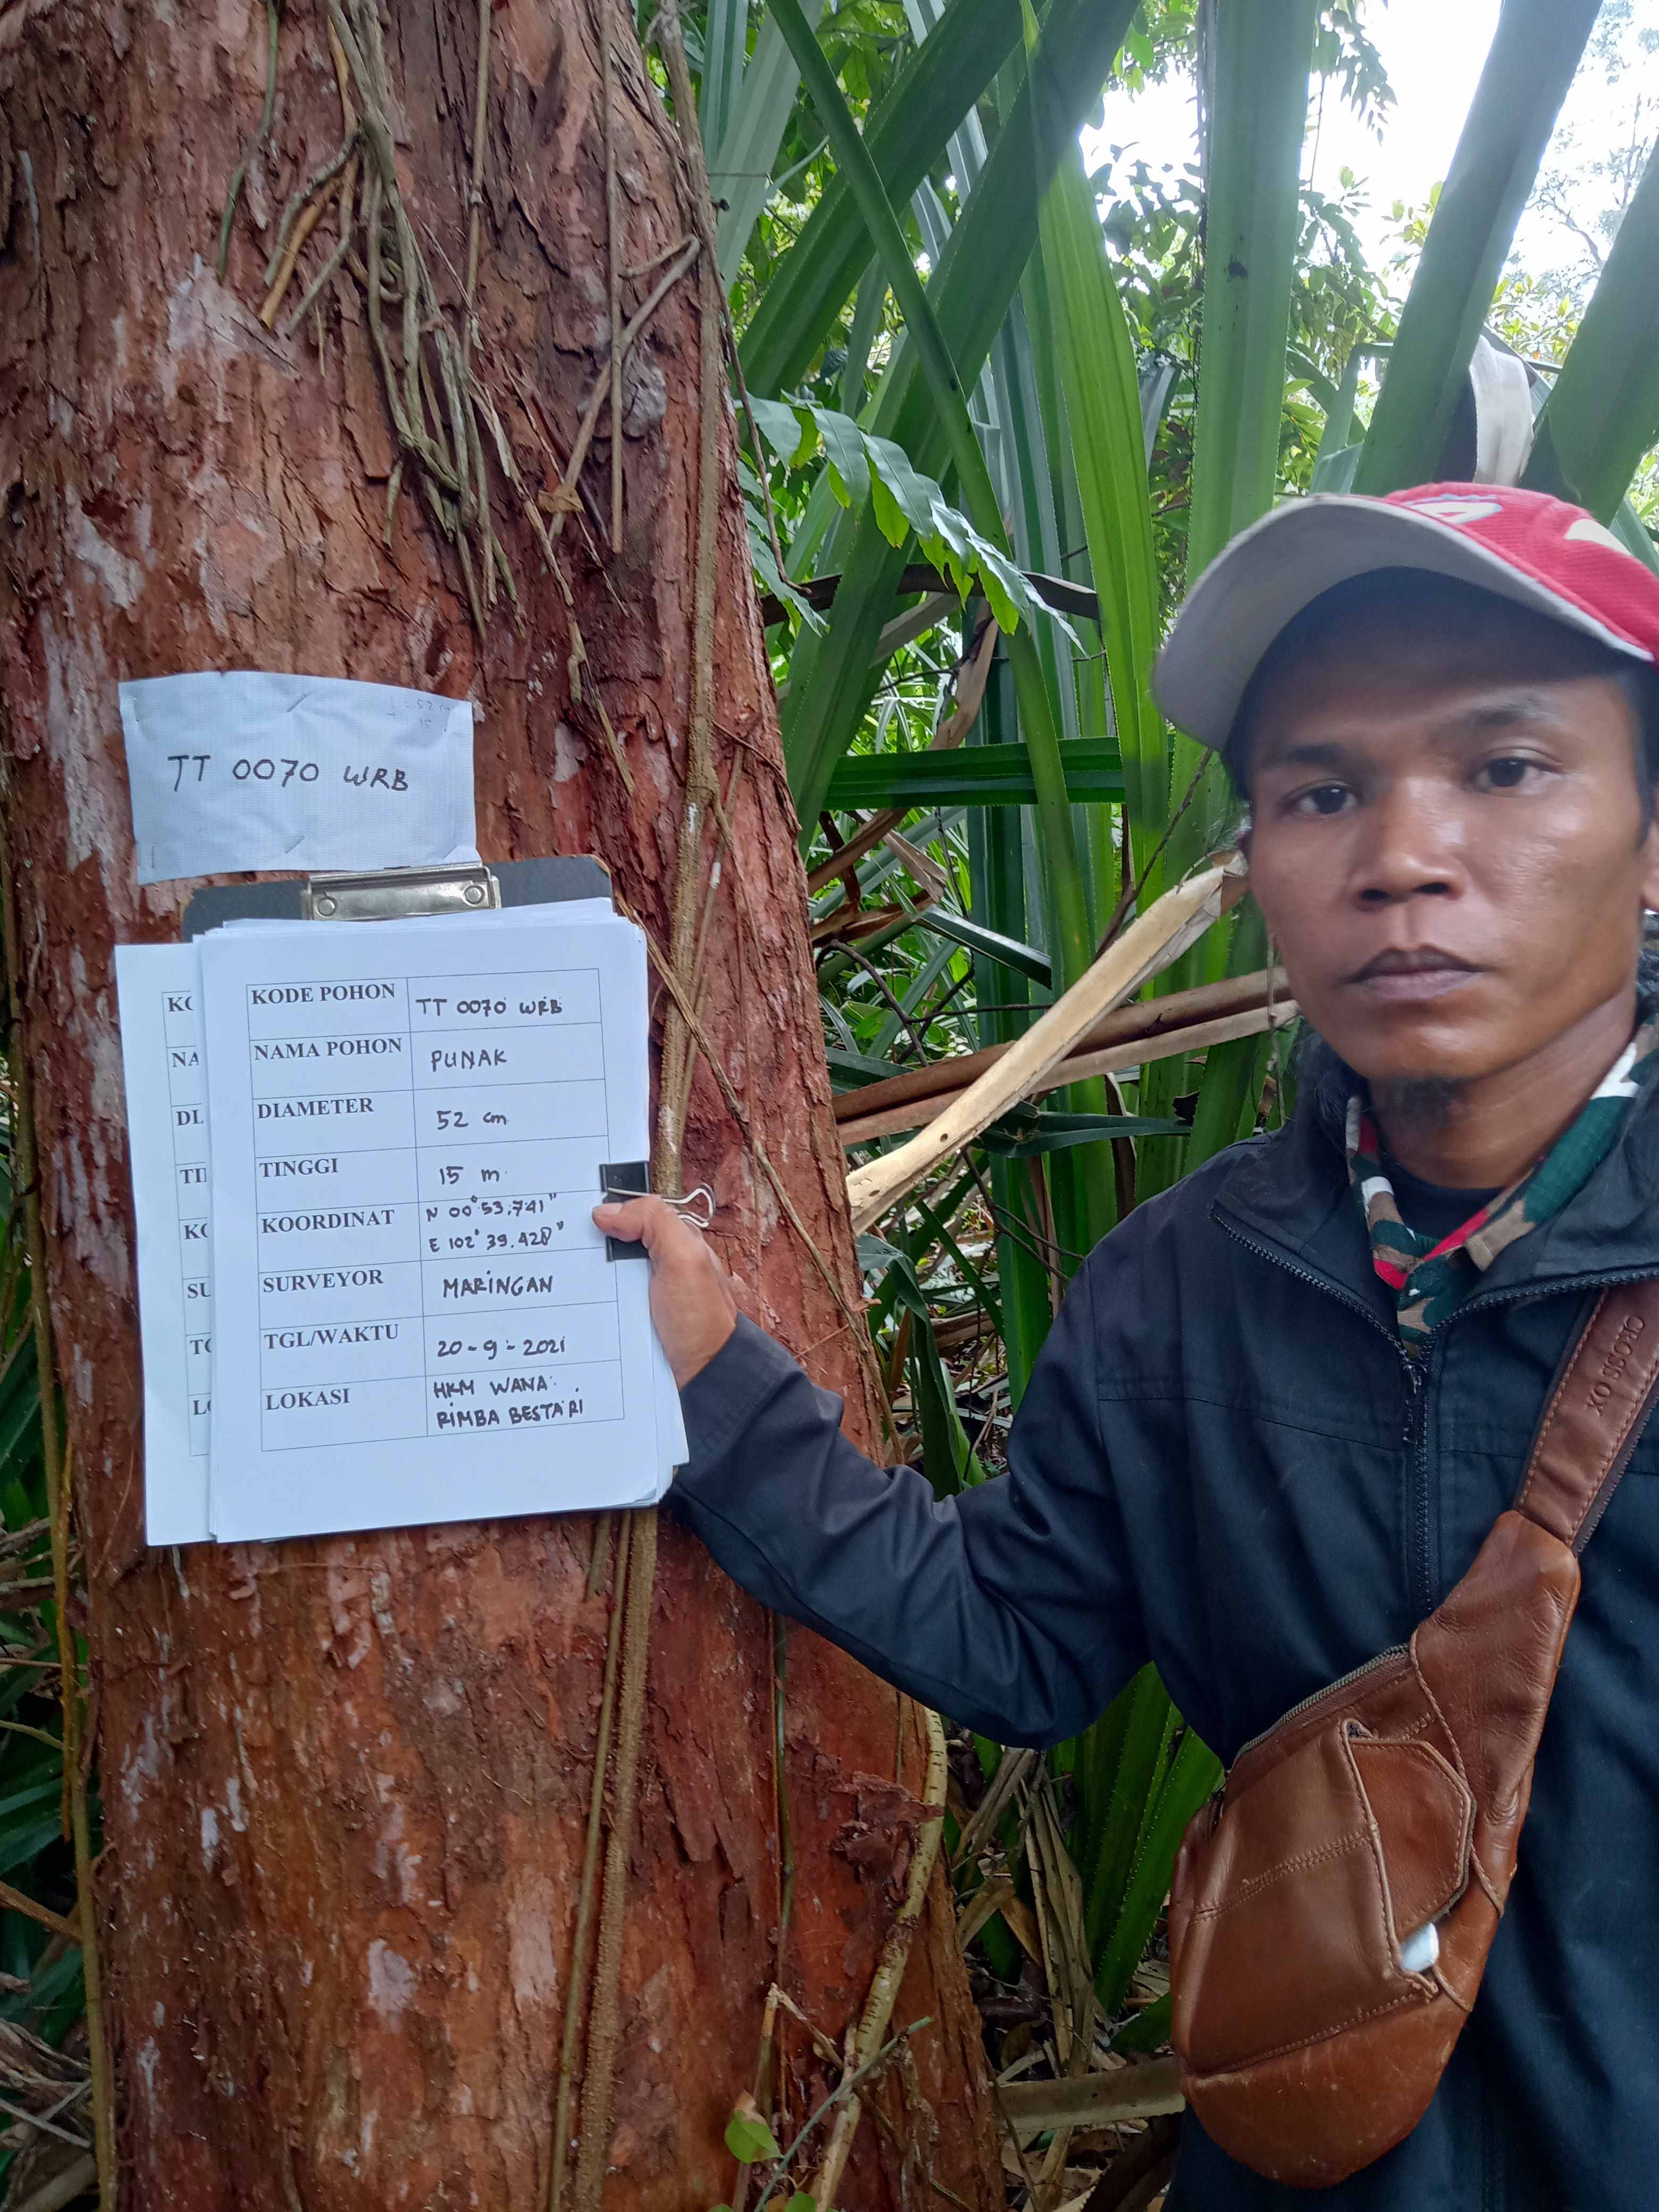 TT 0070 WRB
KODE POHON TT 0070 WRB
NAMA POHON PUNAK
DIAMETER 52 cm
TINGGI 15 m
KOORDINAT N 00° 53.741"
E 102° 39.428"
SURVEYOR MARINGAN
TGL/WAKTU 20-9-2021
LOKASI HKM WANA
RIMBA BESTARI
KO
NA
TI
KO
SU
CROSS OX